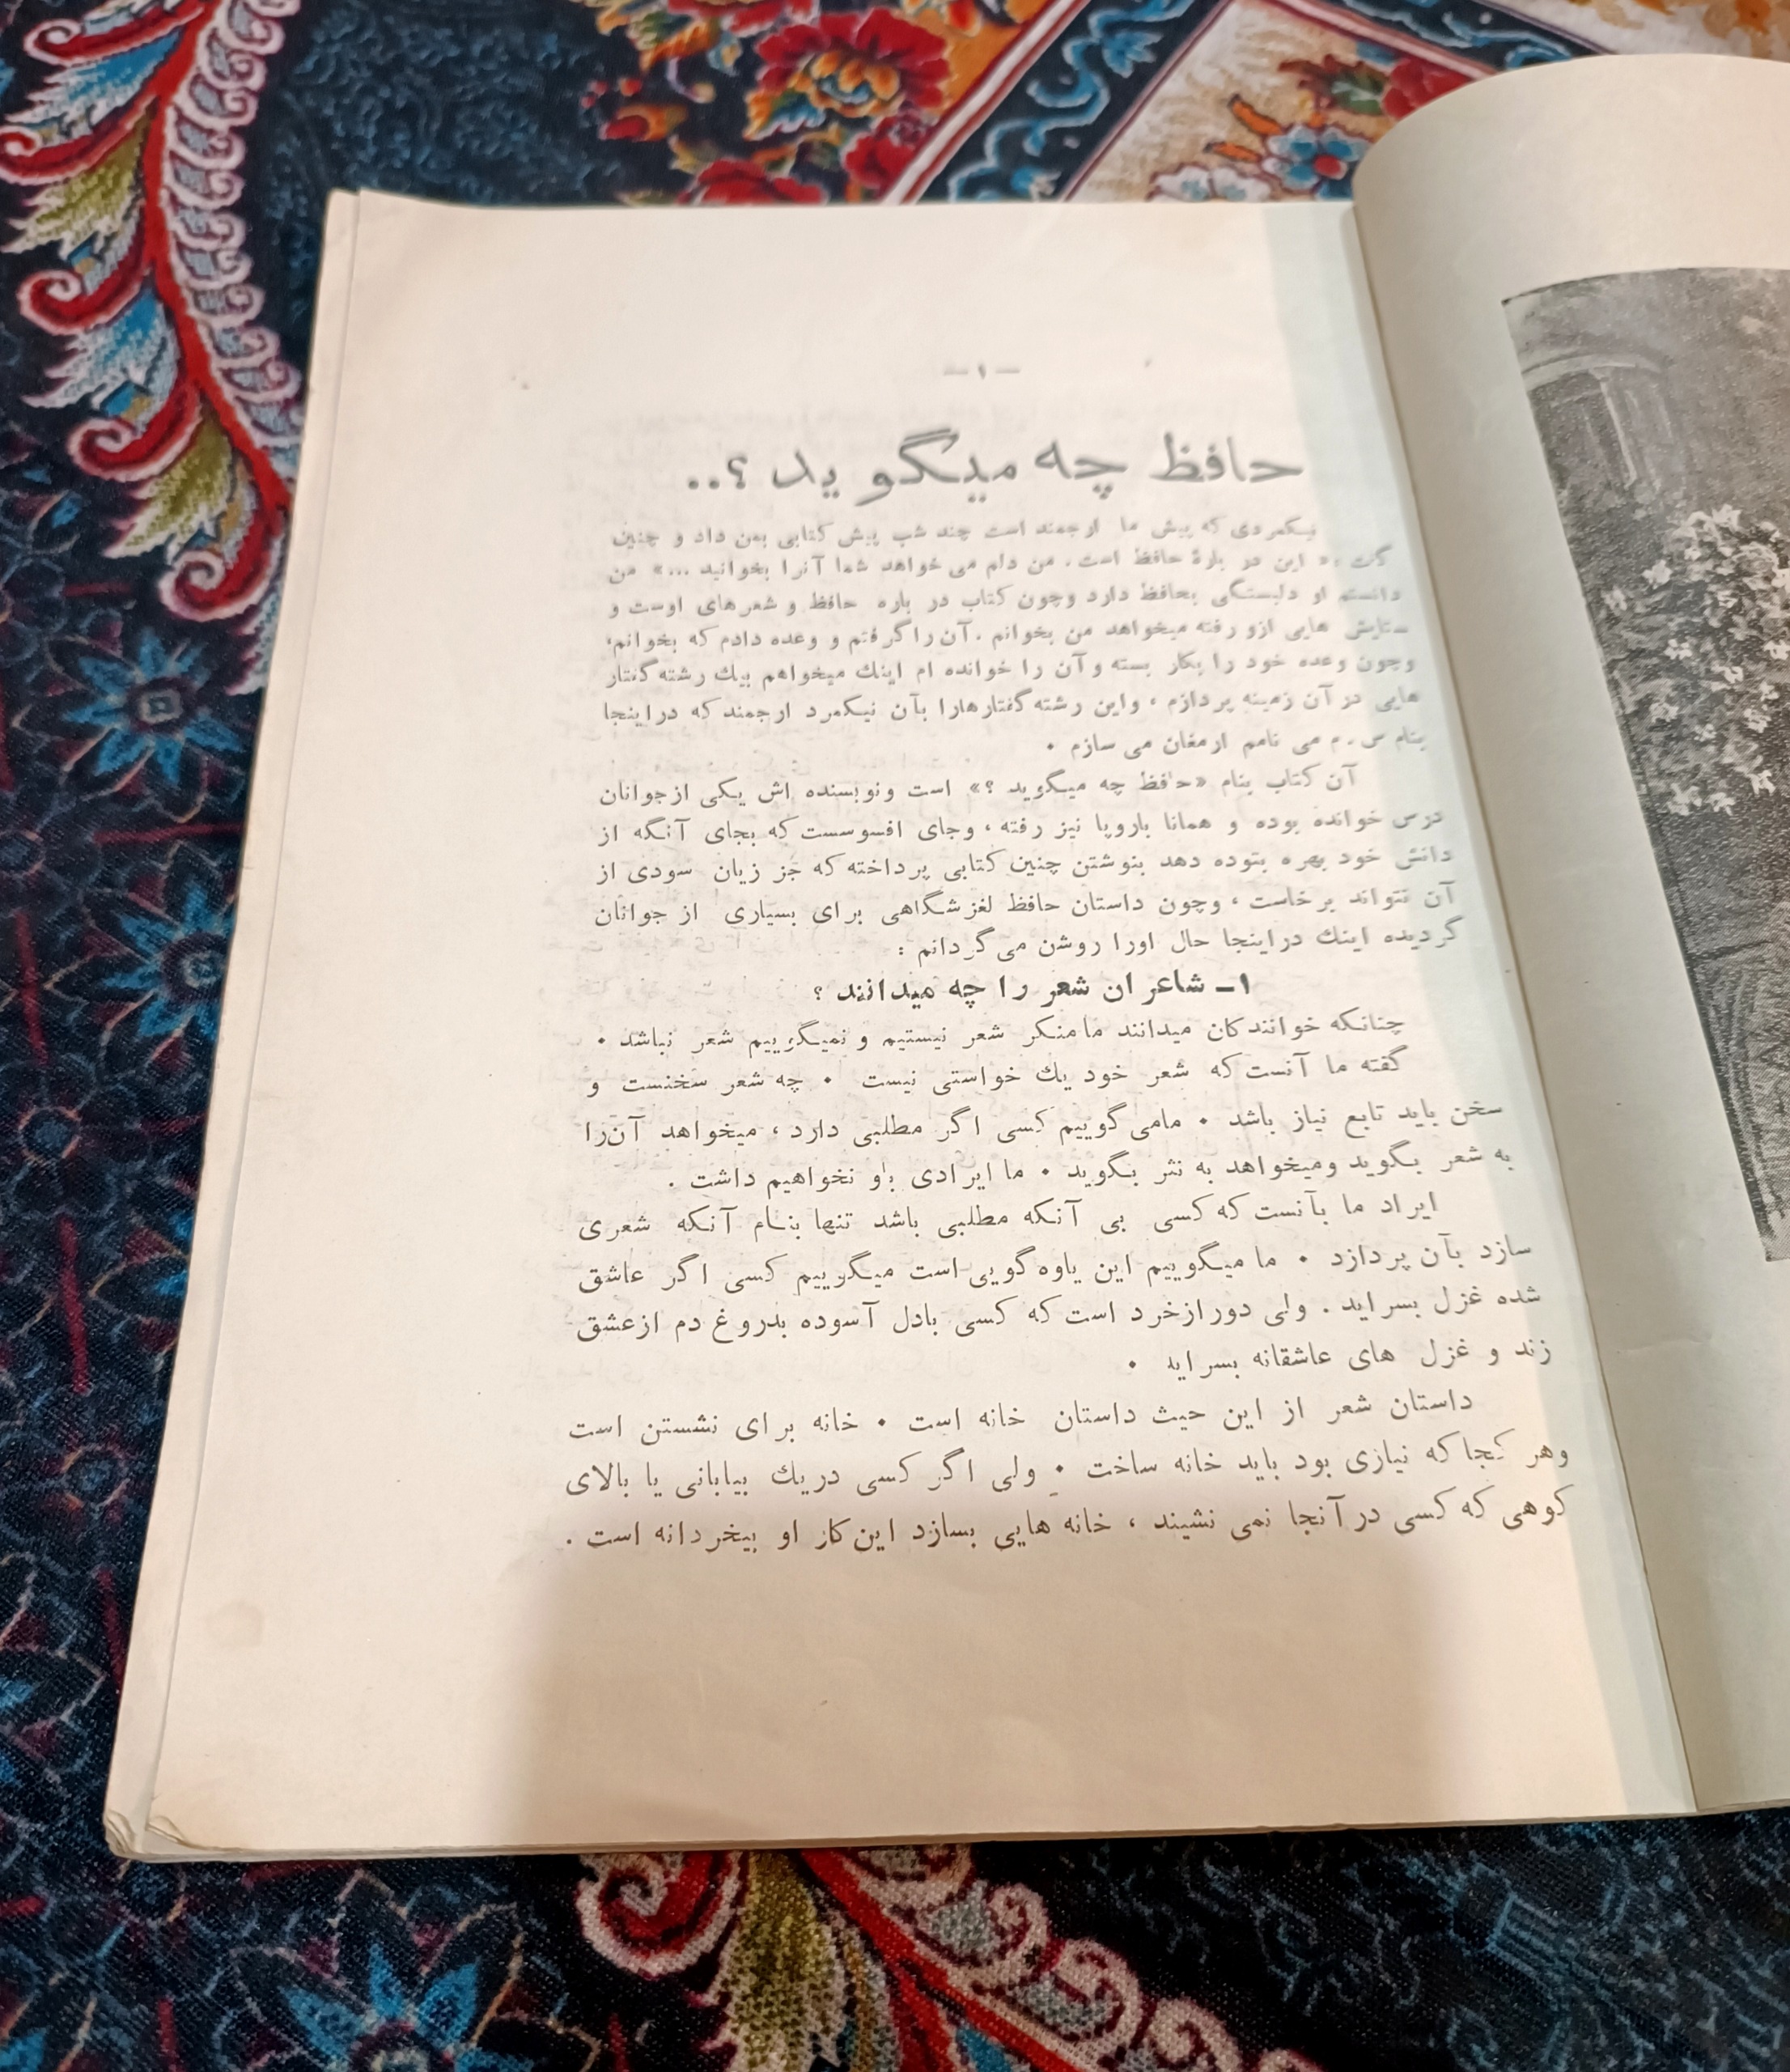 — ۱ —
حافظ چه میگوید ؟..
نیکمردی که پیش ما ارجمند است چند شب پیش کتابی بمن داد و چنین
گفت : « این در بارهٔ حافظ است . من دلم می خواهد شما آنرا بخوانید ...» من
دانستم او دلبستگی بحافظ دارد وچون کتاب در باره حافظ و شعرهای اوست و
ستایش هایی ازو رفته میخواهد من بخوانم . آن را گرفتم و وعده دادم که بخوانم،
وچون وعده خود را بکار بسته و آن را خوانده ام اینك میخواهم بیك رشته گفتار
هایی در آن زمینه پردازم ، واین رشته گفتارهارا بآن نیکمرد ارجمند که دراینجا
بنام س . م می نامم ارمغان می سازم .
آن کتاب بنام «حافظ چه میگوید ؟» است ونویسنده اش یکی ازجوانان
درس خوانده بوده و همانا باروپا نیز رفته ، وجای افسوسست که بجای آنگه از
دانش خود بهره بتوده دهد بنوشتن چنین کتابی پرداخته که جز زیان سودی از
آن نتواند برخاست ، وچون داستان حافظ لغزشگاهی برای بسیاری از جوانان
گردیده اینك دراینجا حال اورا روشن می گردانم :
۱ ـ شاعران شعر را چه میدانند ؟
چنانکه خوانندکان میدانند مامنکر شعر نیستیم و نمیگوییم شعر نباشد .
گفته ما آنست که شعر خود یك خواستی نیست . چه شعر سخنست و
سخن باید تابع نیاز باشد . مامی گوییم کسی اگر مطلبی دارد ، میخواهد آن را
به شعر بگوید ومیخواهد به نثر بگوید . ما ایرادی باو نخواهیم داشت .
ایراد ما بآنست که کسی بی آنکه مطلبی باشد تنها بنام آنکه شعری
سازد بآن پردازد . ما میگوییم این یاوه گویی است میگوییم کسی اگر عاشق
شده غزل بسراید . ولی دور ازخرد است که کسی بادل آسوده بدروغ دم ازعشق
زند و غزل های عاشقانه بسراید .
داستان شعر از این حیث داستان خانه است . خانه برای نشستن است
وهر کجا که نیازی بود باید خانه ساخت . ولی اگر کسی دریك بیابانی یا بالای
کوهی که کسی در آنجا نمی نشیند ، خانه هایی بسازد این کار او بیخردانه است .